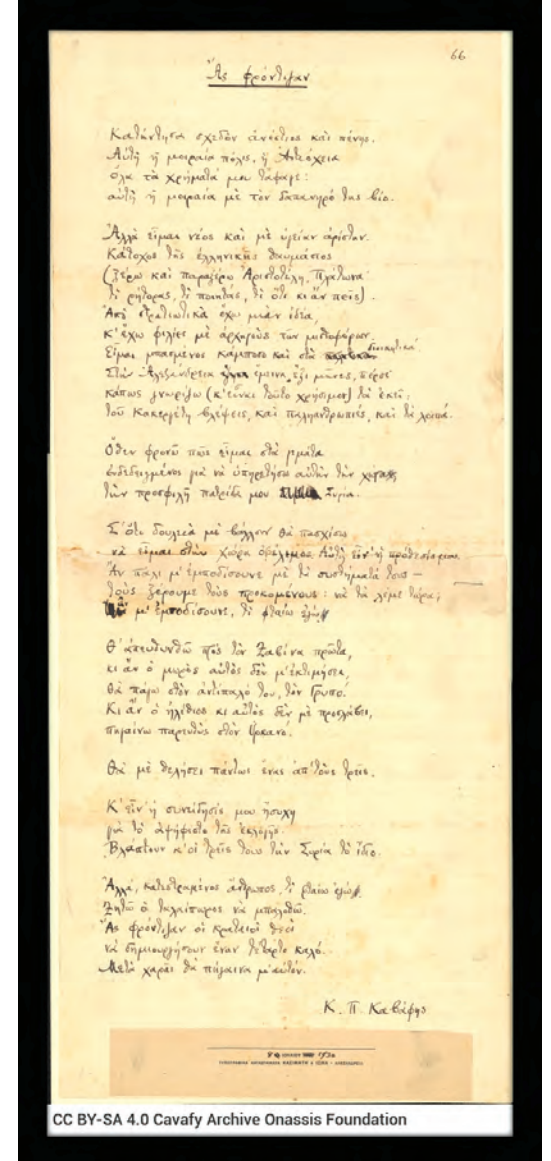 66
Ἂς φρόντιζαν
Κατήντησα σχεδὸν ἀνέστιος καὶ πένης.
Αὐτὴ ἡ μοιραία πόλις, ἡ Ἀντιόχεια
ὅλα τὰ χρήματά μου τἄφαγε:
αὐτὴ ἡ μοιραία μὲ τὸν δαπανηρό της βίο.
Ἀλλὰ εἶμαι νέος καὶ μὲ ὑγείαν ἀρίστην.
Κάτοχος τῆς ἑλληνικῆς θαυμάσιος
(ξέρω καὶ παραξέρω Ἀριστοτέλη, Πλάτωνα·
τί ῥήτορας, τί ποιητάς, τί ὅ,τι κι ἂν πεῖς).
Ἀπὸ στρατιωτικὰ ἔχω μιὰν ἰδέα,
κ' ἔχω φιλίες μὲ ἀρχηγοὺς τῶν μισθοφόρων.
Εἶμαι μπασμένος κάμποσο καὶ στὰ διοικητικά.
Στὴν Ἀλεξάνδρεια ἔμεινα ἕξι μῆνες, πέρσι·
κάπως γνωρίζω (κ' εἶναι τοῦτο χρήσιμον) τὰ ἐκεῖ:
τοῦ Κακεργέτη βλέψεις, καὶ παληανθρωπιές, καὶ τὰ λοιπά.
Ὅθεν φρονῶ πὼς εἶμαι στὰ γεμάτα
ἐνδεδειγμένος γιὰ νὰ ὑπηρετήσω αὐτὴν τὴν χώρα,
τὴν προσφιλῆ πατρίδα μου Συρία.
Σ' ὅ,τι δουλειὰ μὲ βάλλουν θὰ πασχίσω
νὰ εἶμαι στὴν χώρα ὠφέλιμος. Αὐτὴ εἶν' ἡ πρόθεσίς μου.
Ἂν πάλι μ' ἐμποδίσουνε μὲ τὰ συστήματά τους —
τοὺς ξέρουμε τοὺς προκομένους: νὰ τὰ λέμε τώρα;
μ' ἐμποδίσουνε, τί φταίω ἐγώ.
Θ' ἀπευθυνθῶ πρὸς τὸν Ζαβίνα πρῶτα,
κι ἂν ὁ μωρὸς αὐτὸς δὲν μ' ἐκτιμήσει,
θὰ πάγω στὸν ἀντίπαλό του, τὸν Γρυπό.
Κι ἂν ὁ ἠλίθιος κι αὐτὸς δὲν μὲ προσλάβει,
πηγαίνω παρευθὺς στὸν Ὑρκανό.
Θὰ μὲ θελήσει πάντως ἕνας ἀπ' τοὺς τρεῖς.
Κ' εἶν' ἡ συνείδησίς μου ἥσυχη
γιὰ τὸ ἀψήφιστο τῆς ἐκλογῆς.
Βλάπτουν κ' οἱ τρεῖς τους τὴν Συρία τὸ ἴδιο.
Ἀλλά, κατεστραμένος ἄνθρωπος, τί φταίω ἐγώ.
Ζητῶ ὁ ταλαίπωρος νὰ μπαλωθῶ.
Ἂς φρόντιζαν οἱ κραταιοὶ θεοὶ
νὰ δημιουργήσουν ἕναν τέταρτο καλό.
Μετὰ χαρᾶς θὰ πήγαινα μ' αὐτόν.
Κ. Π. Καβάφης
1930
CC BY-SA 4.0 Cavafy Archive Onassis Foundation